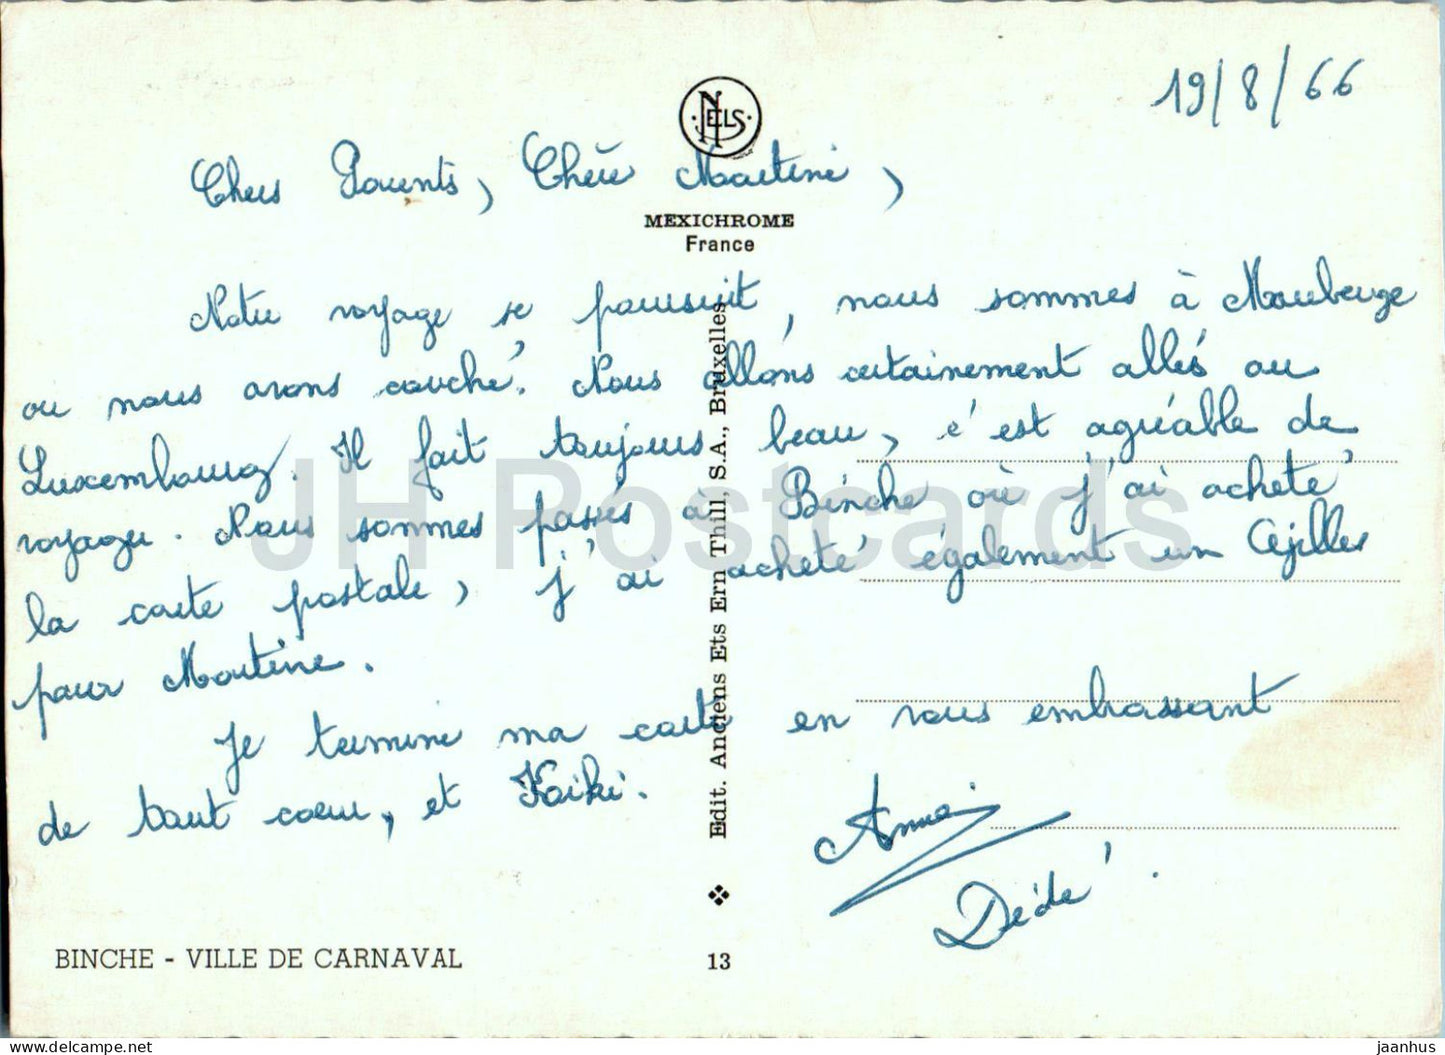 19/8/66
NELS
Chers Parents, Chère Martine,
MEXICHROME
France
Notre voyage se poursuit, nous sommes à Maubeuge
où nous avons couché. Nous allons certainement allés au
Luxembourg. Il fait toujours beau, c'est agréable de
voyager. Nous sommes passés à Binche où j'ai acheté
la carte postale, j'ai acheté également un Gilles
pour Martine.
Je termine ma carte en vous embrassant
de tout coeur, et Kaiki.
Annie
Dédé.
Edit. Anciens Ets Ern Thill, S.A., Bruxelles
BINCHE - VILLE DE CARNAVAL
13
JH Postcards
www.delcampe.net
jaanhus